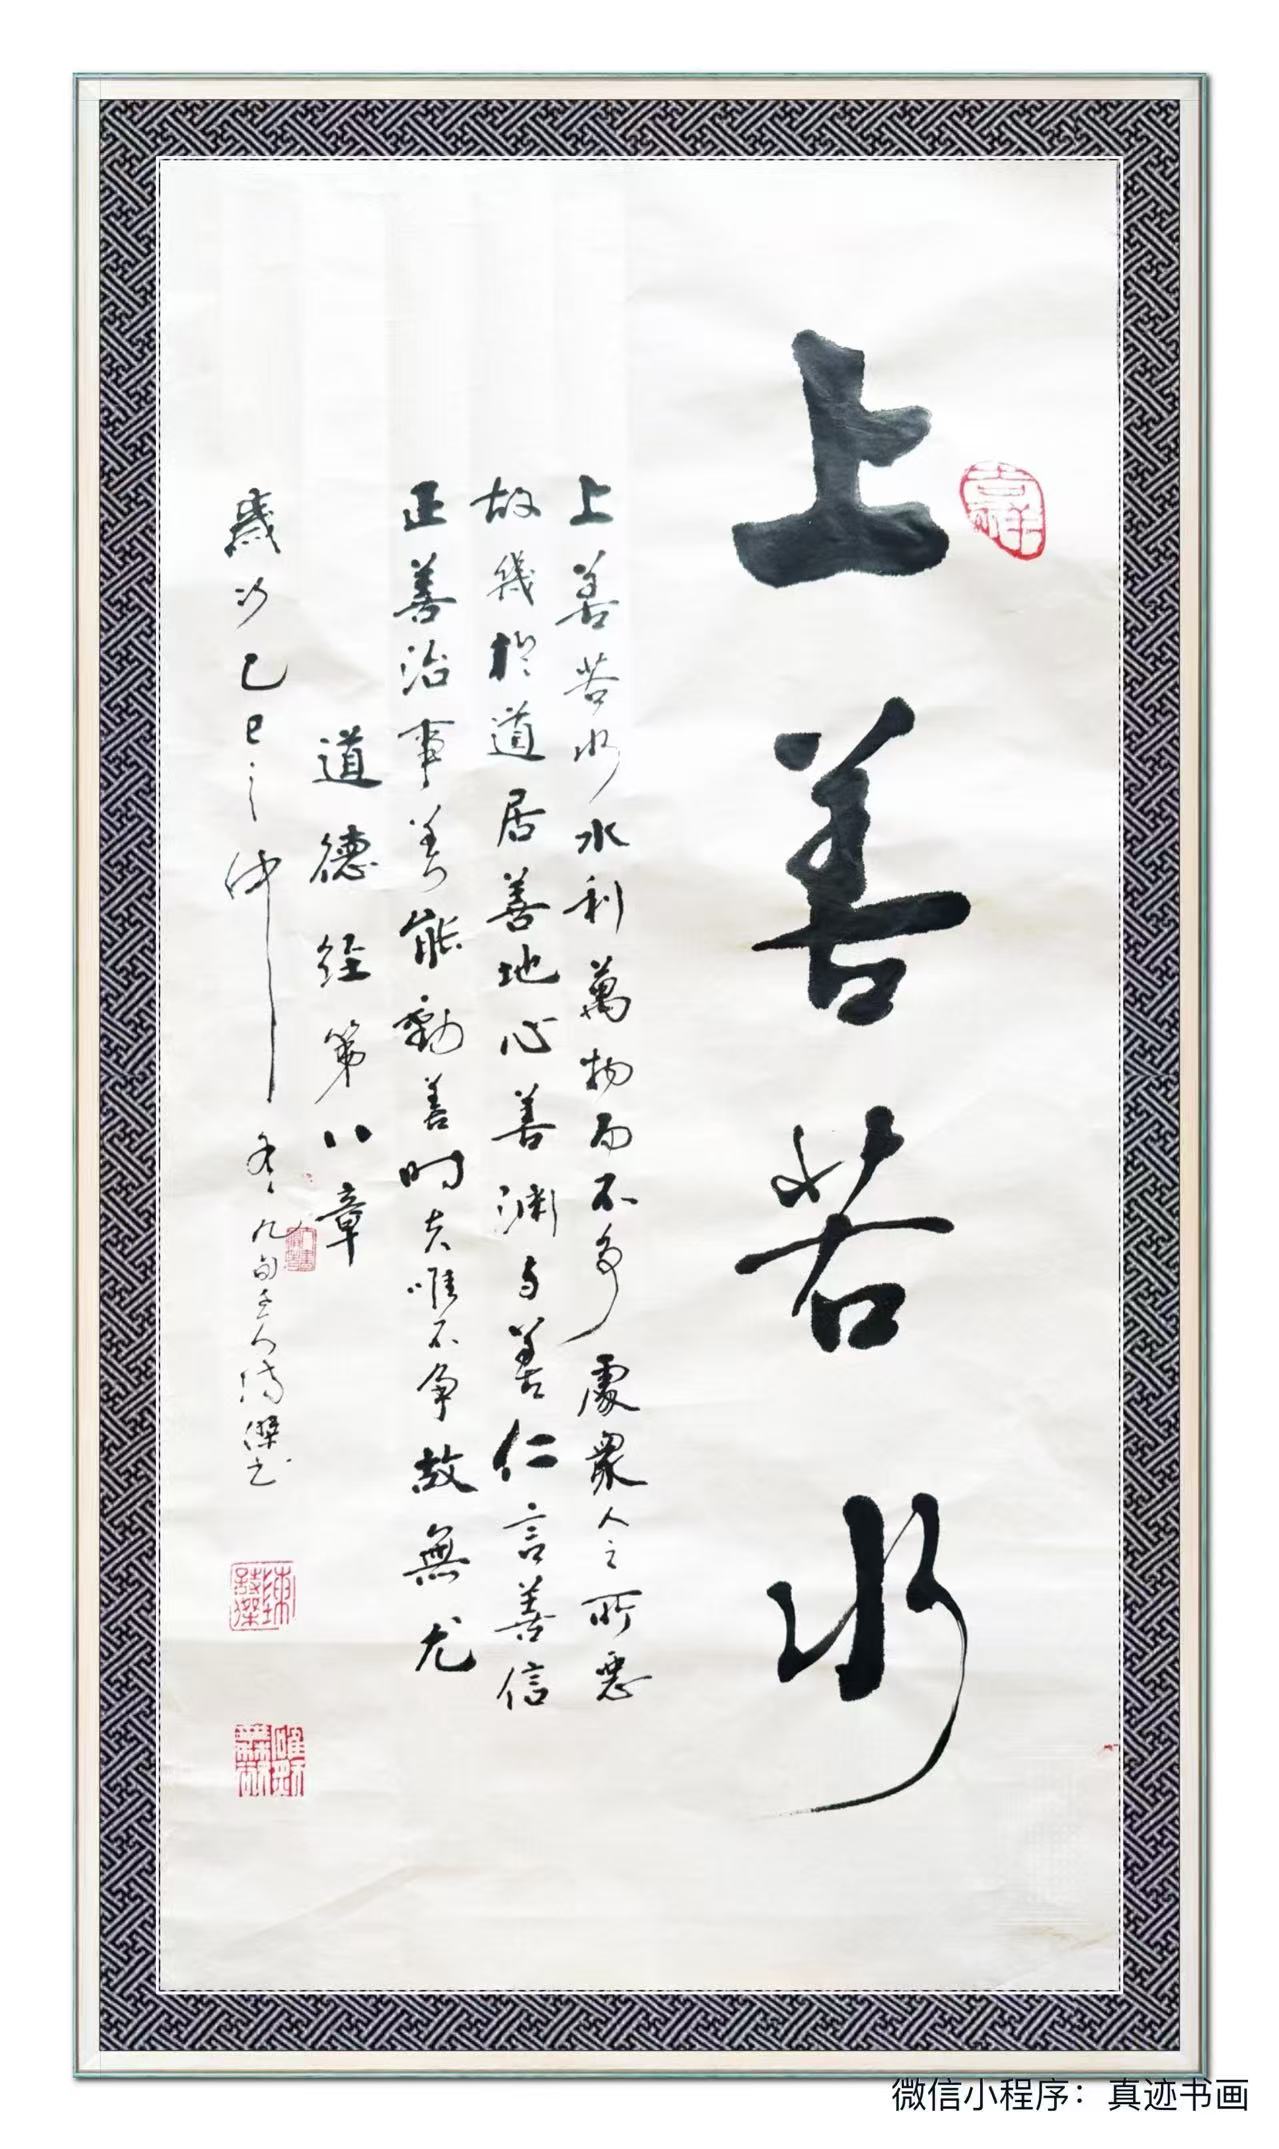 上善若水
上善若水水利萬物而不爭處衆人之所惡
故幾於道居善地心善淵与善仁言善信
正善治事善能動善時夫唯不争故無尤
道德经第八章
歲次乙巳之仲冬九旬老人诗傑书
微信小程序：真迹书画